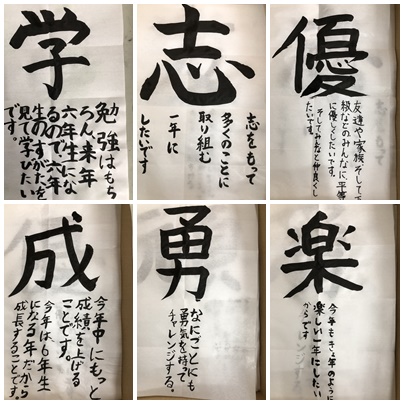 学
勉強はもち
ろん来年
六年生にな
るので六年
生のすがたを
見て学びたい
です。
志
志をもって
多くのことに
取り組む
一年に
したいです
優
友達や家族そして下
級などのみんなに平等
に優しくしたいです。
そしてみなと仲良くし
たいです。
成
今年中にもっと
成績を上げる
ことです。
今年は6年生
になる年だから
成長することです。
勇
なにごとにも
勇気を持って
チャレンジする。
楽
今年もきょ年のように
楽しい一年にしたい
からです